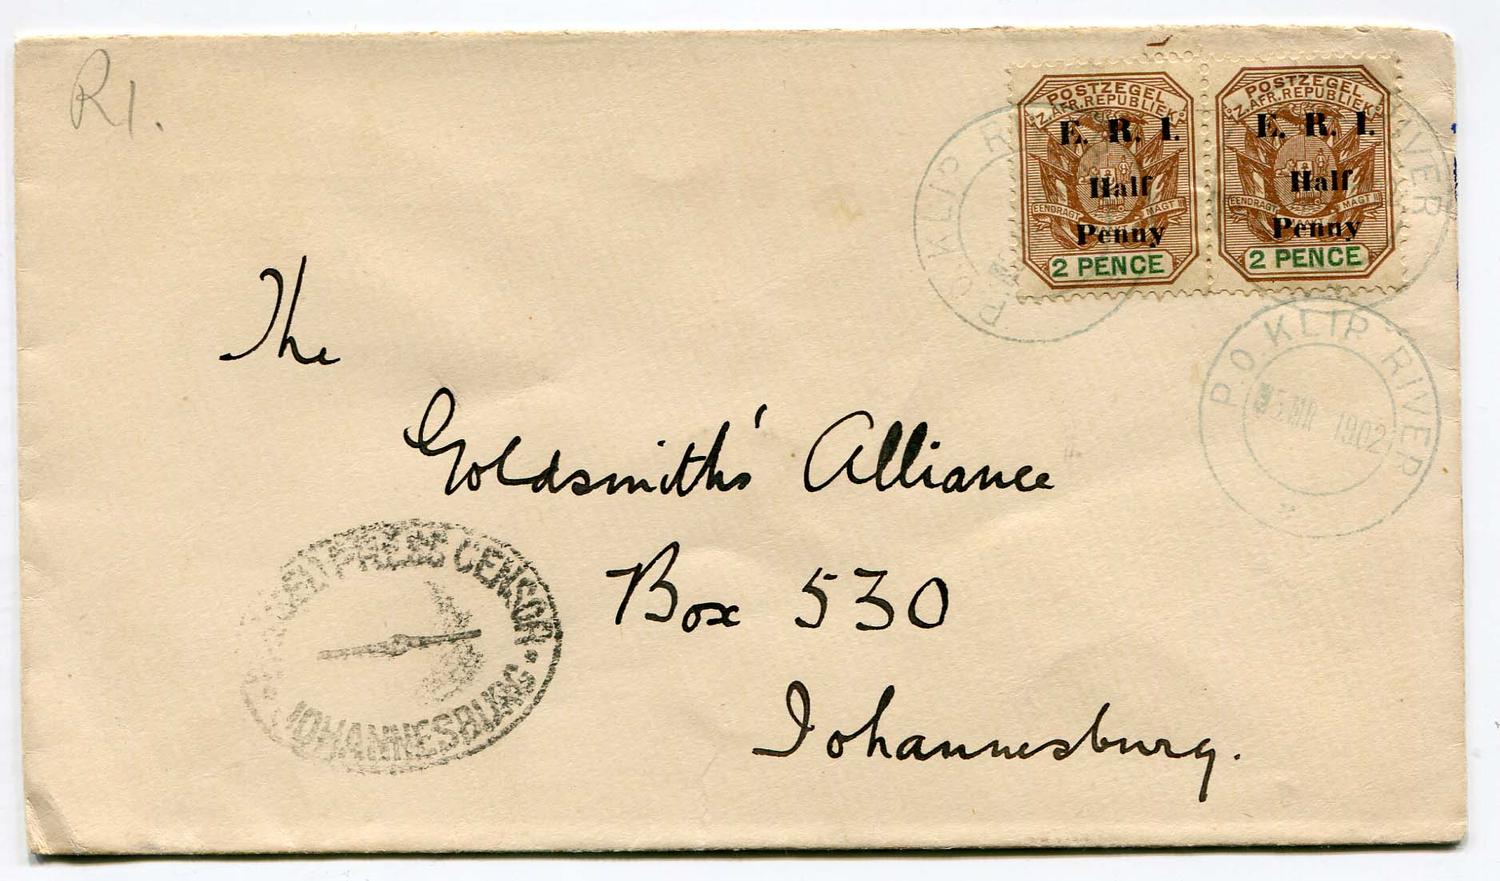 R1.
POSTZEGEL
Z. AFR. REPUBLIEK
E. R. I.
Half
EENDRAGT MAAKT MAGT
Penny
2 PENCE
POSTZEGEL
Z. AFR. REPUBLIEK
E. R. I.
Half
EENDRAGT MAAKT MAGT
Penny
2 PENCE
P.O. KLIP R
RIVER
P.O. KLIP RIVER
MR 1902
The
Goldsmiths' Alliance
Box 530
Johannesburg.
PRESS CENSOR
JOHANNESBURG